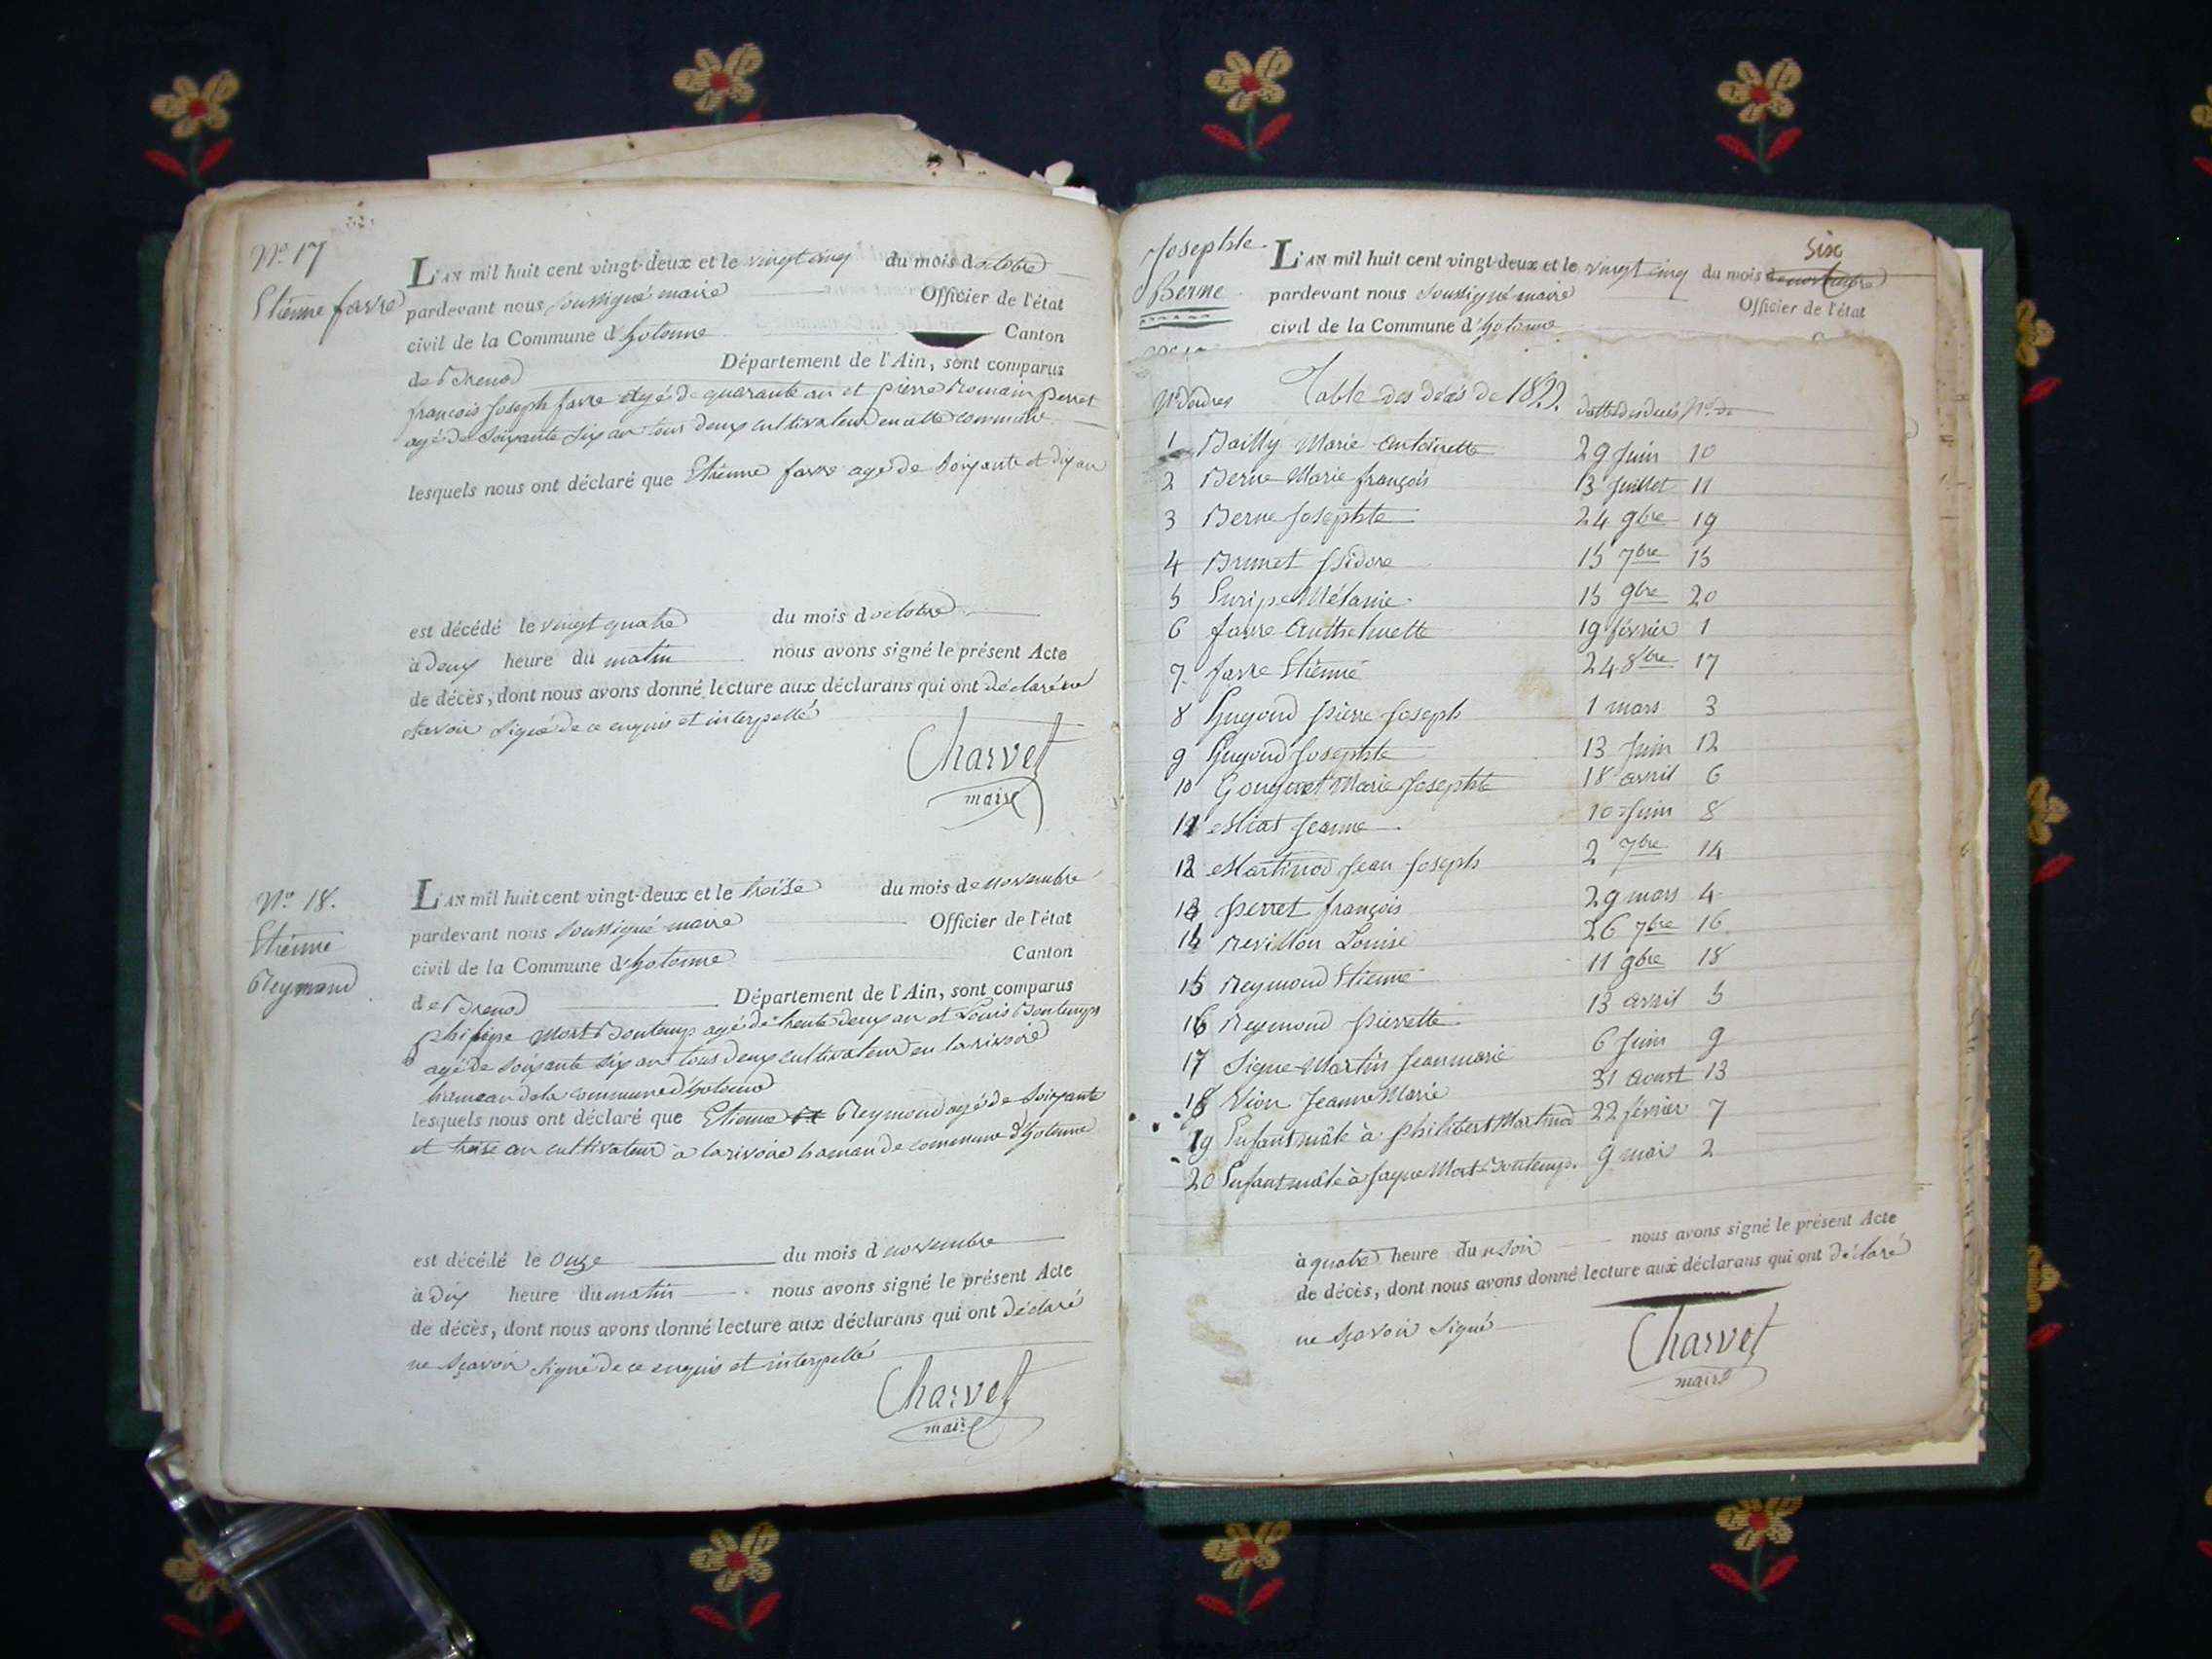 No. 17
Etienne favre
L'AN mil huit cent vingt-deux et le vingt cinq du mois doctobre
pardevant nous soussigné maire Officier de l'état
civil de la Commune d'hotonne Canton
de Brenod Département de l'Ain, sont comparus
francois Joseph favre agé de quarante an et pierre Romain perret
agé de soixante six an tous deux cultivateur en cette commune
lesquels nous ont déclaré que Etienne favre agé de soixante et dix an
est décédé le vingt quatre du mois d octobre
à deux heure du matin nous avons signé le présent Acte
de décès, dont nous avons donné lecture aux déclarans qui ont déclaré ne
savoir signé de ce enquis et interpellé
Charvet
maire
No. 18.
Etienne
Reymond
L'AN mil huit cent vingt-deux et le treise du mois de novembre
pardevant nous soussigné maire Officier de l'état
civil de la Commune d'hotonne Canton
de Brenod Département de l'Ain, sont comparus
Mort Bontemps agé de trente deux an et Louis Bontemps
agé de soixante six an tous deux cultivateur en la rivoire
hameau de la commune d'hotonne
lesquels nous ont déclaré que Etienne Reymond agé de soixante
et treise an cultivateur a la rivoire hameau de commune d'hotonne
est décédé le Onze du mois d novembre
à dix heure du matin nous avons signé le présent Acte
de décès, dont nous avons donné lecture aux déclarans qui ont déclaré
ne sçavoir signé de ce enquis et interpellé
Charvet
maire
Josephte
Berne
Six
L'AN mil huit cent vingt-deux et le vingt cinq du mois de novembre
pardevant nous soussigné maire Officier de l'état
civil de la Commune d'hotonne
Table des décés de 1822.
No. dordres dattes des décés No. de
1 Bailly Marie Antoinette 29 Juin 10
2 Berne Marie françois 13 Juillet 11
3 Berne Josephte 24 9bre 19
4 Brunet Isidore 15 7bre 15
5 Mélanie 15 9bre 20
6 favre Anthelmette 19 février 1
7 favre Etienne 24 8bre 17
8 Guyoud pierre Joseph 1 mars 3
9 Guyoud Josephte 13 Juin 12
10 Gougout Marie Josephte 18 avril 6
11 Miat Jeanne 10 Juin 8
12 Martinod Jean Joseph 2 7bre 14
13 perret françois 29 mars 4
14 Revillon Louise 26 7bre 16
15 Reymond Etienne 11 9bre 18
16 Reymond pierrette 13 avril 5
17 Martin Jeanmarie 6 Juin 9
18 Vion Jeanne Marie 31 Aoust 13
19 Enfant mâle à philibert Martinod 22 février 7
20 Enfant mâle à Jaque Mort Bontemps. 9 mai 2
à quatre heure du soir nous avons signé le présent Acte
de décès, dont nous avons donné lecture aux déclarans qui ont déclaré
ne sçavoir signé
Charvet
maire